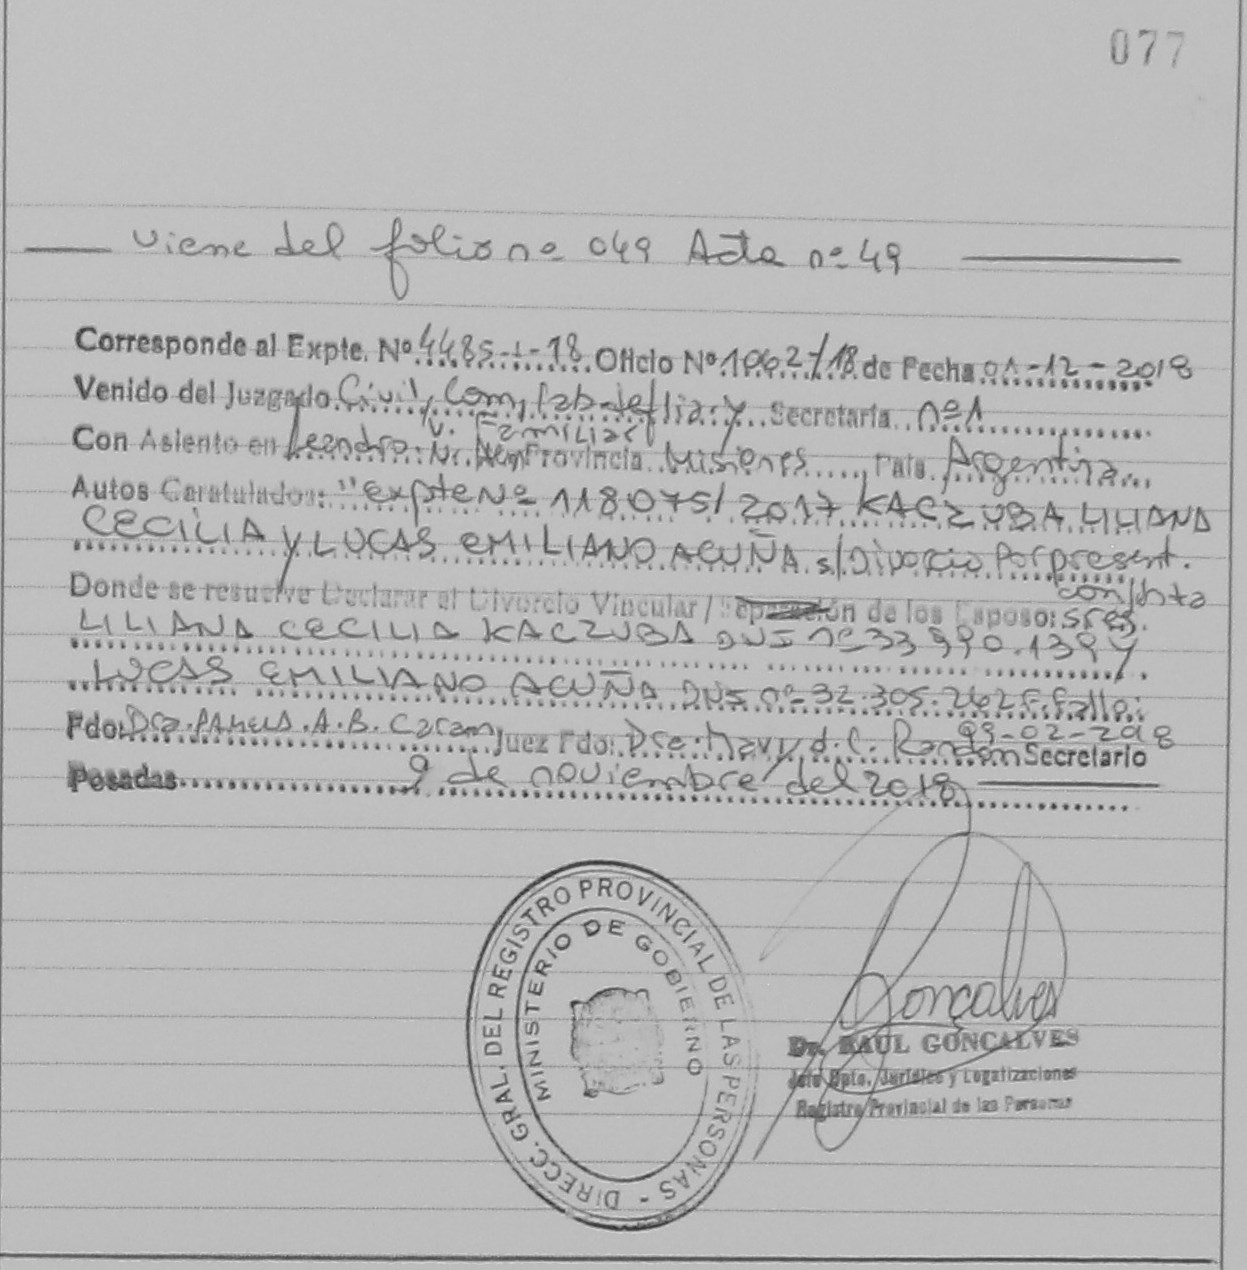 077
viene del folio nº 049 Acta nº 49
Corresponde al Expte. Nº 4485-1-18 Oficio Nº 1062/18 de Fecha 01-12-2018
Venido del Juzgado Civil, Com, Lab. de flia. y Secretaría nº1
v. Familiar
Con Asiento en Leandro N. Alem Provincia Misiones País Argentina
Autos Caratulados: "expte Nº 118075/2017 KACZUBA LILIANA
CECILIA y LUCAS EMILIANO ACUÑA s/Divorcio Por present.
conjunta
Donde se resuelve Declarar el Divorcio Vincular/Separación de los Esposo: sres.
LILIANA CECILIA KACZUBA DNI nº 33.990.139 y
LUCAS EMILIANO ACUÑA DNI nº 32.305.262 F. fallo:
09-02-2018
Fdo: Dra. A.B. Caram Juez Fdo: Dra. C. Secretario
Posadas 9 de noviembre del 2018
DIRECC. GRAL. DEL REGISTRO PROVINCIAL DE LAS PERSONAS -
MINISTERIO DE GOBIERNO
Goncalves
Dr. RAUL GONCALVES
Jefe Dpto. Jurídico y Legalizaciones
Registro Provincial de las Personas